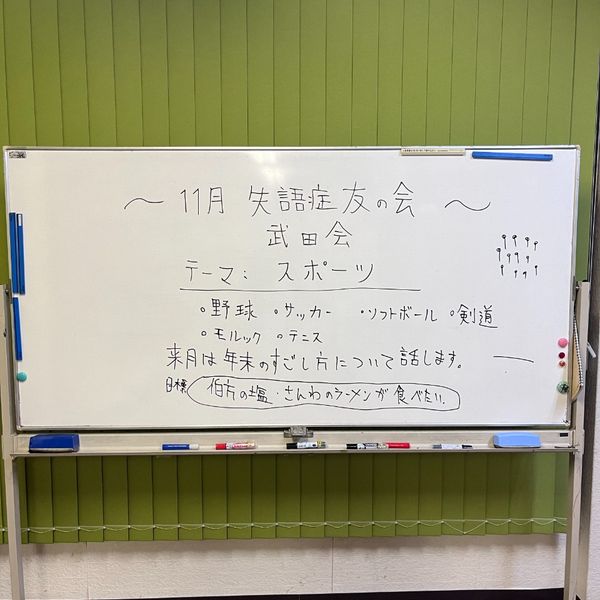 ～ 11月 失語症友の会 ～
武田会
テーマ: スポーツ
・野球 ・サッカー ・ソフトボール ・剣道
・モルック ・テニス
来月は年末のすごし方について話します。
目標 伯方の塩・さんわのラーメンが食べたい。